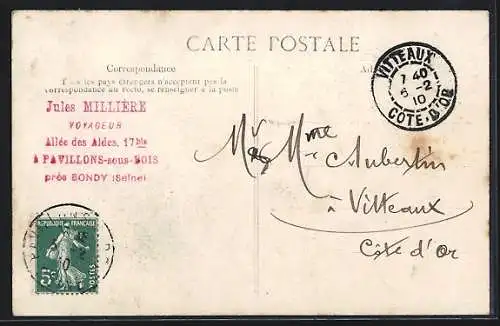 CARTE POSTALE
Correspondance
Tous les pays étrangers n'acceptent pas la
correspondance au recto, se renseigner à la poste
Jules MILLIÈRE
VOYAGEUR
Allée des Aldes, 17 bis
A PAVILLONS-sous-BOIS
près BONDY (Seine)
VITTEAUX
7 40
6 -2
10
CÔTE-D'OR
Mme Aubertin
à Vitteaux
Côte d'Or
RÉPUBLIQUE FRANÇAISE
5c
POSTES